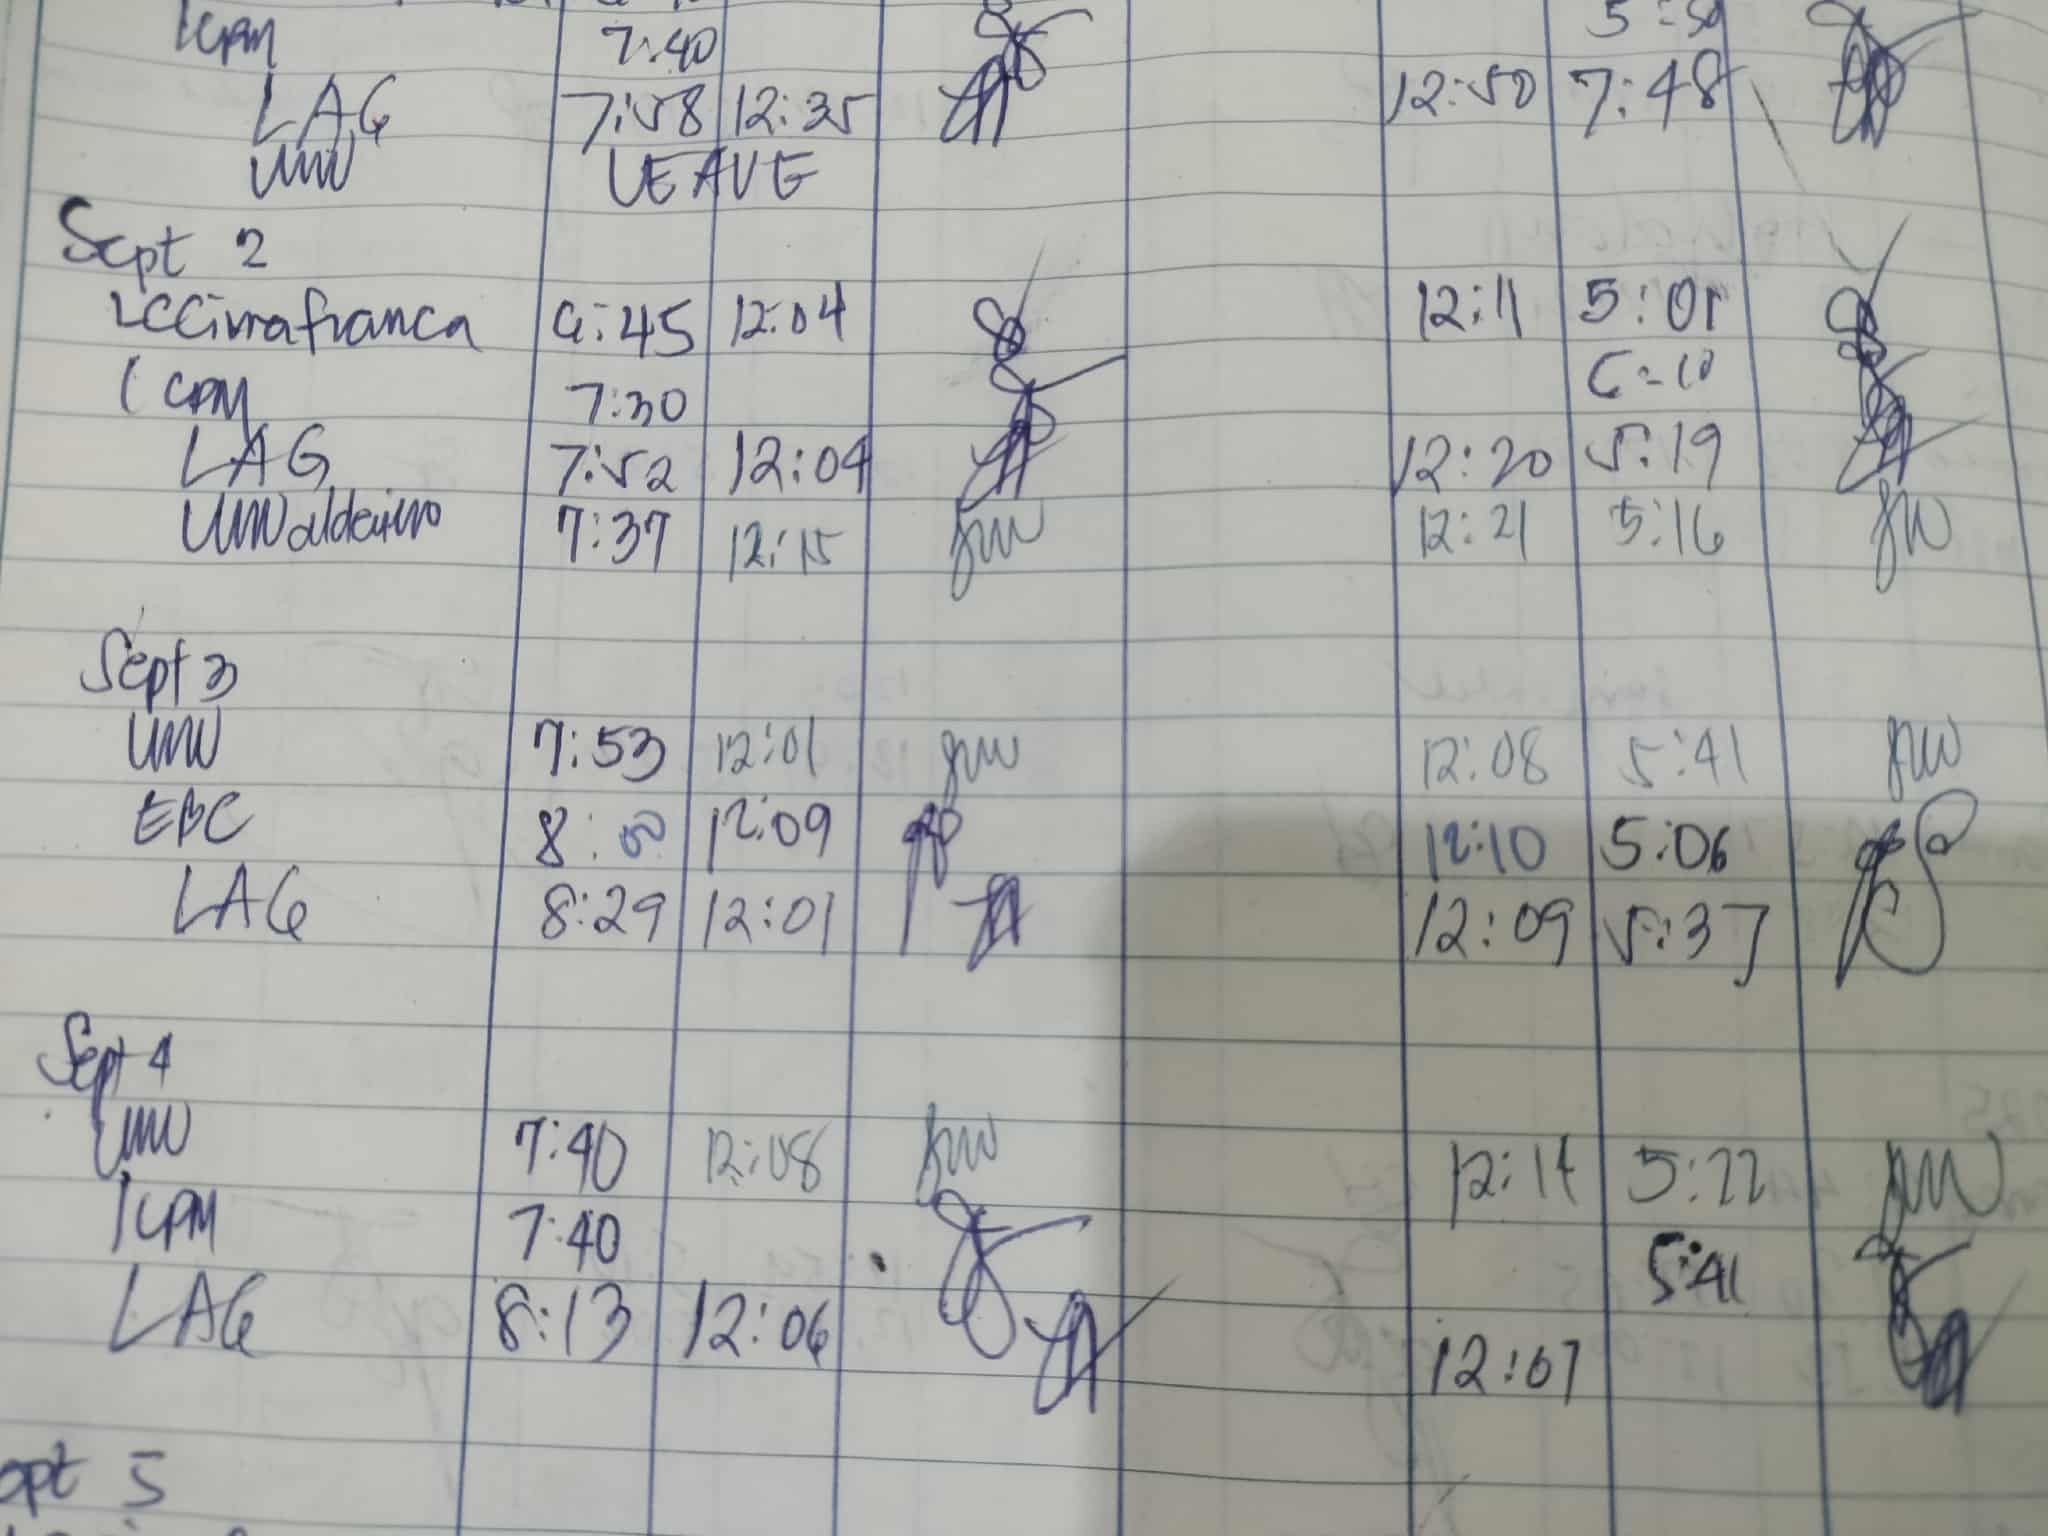 7:40 5:50
LAG 7:58 12:35 12:50 7:48
LEAVE
Sept 2
6:45 12:04 12:11 5:01
7:30
LAG 7:52 12:04 12:20 5:19
7:37 12:15 12:21 5:16
Sept 3
UMV 7:53 12:01 12:08 5:41
EBC 8:00 12:09 12:10 5:06
LAG 8:29 12:01 12:09 5:37
Sept 4
UMV 7:40 12:08 12:14 5:22
7:40 5:41
LAG 8:13 12:06 12:07
5